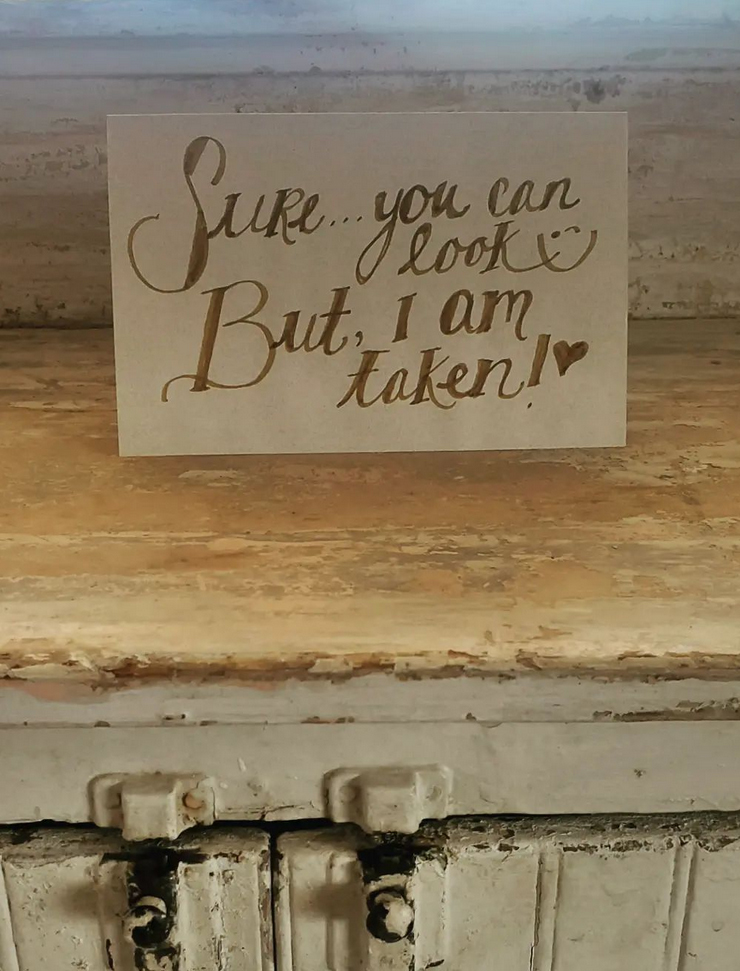 Sure... you can
look
But, I am
taken!